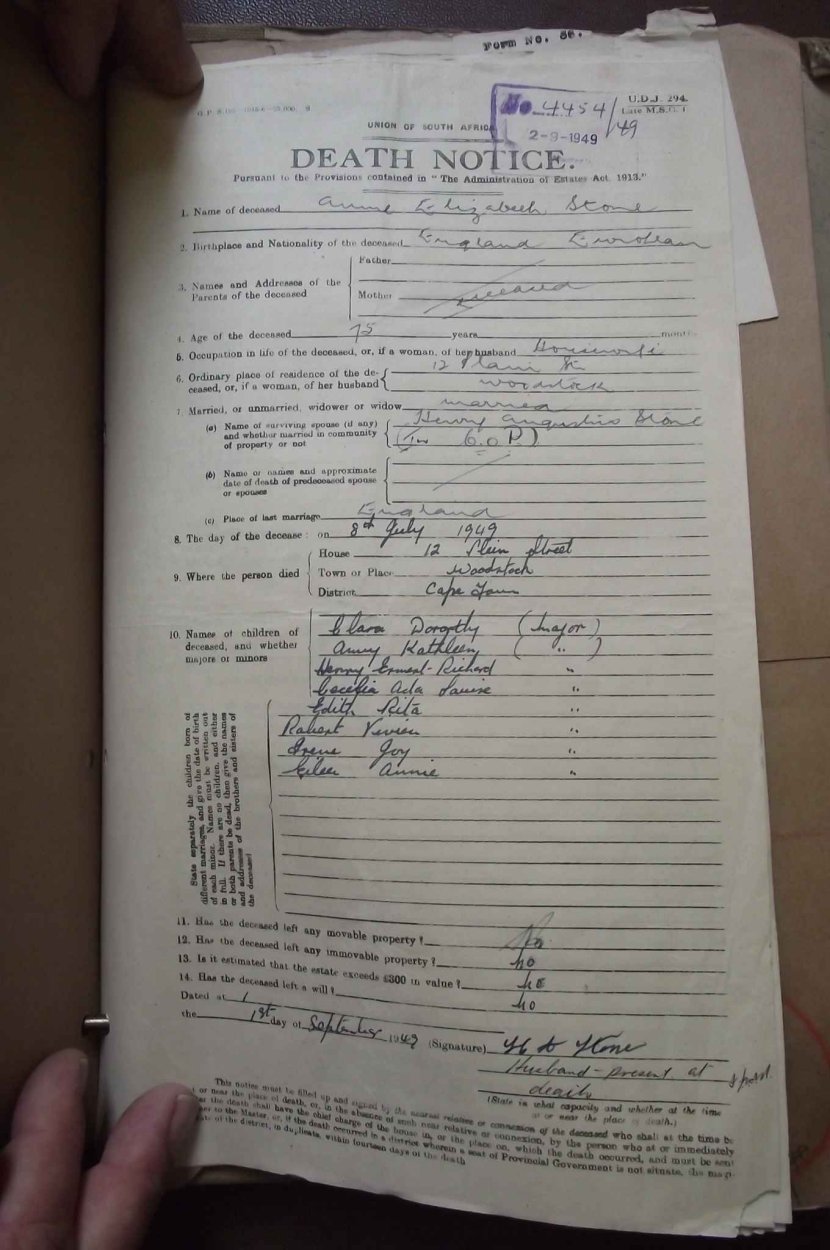 Form No. 56.
U.D.J. 294.
Late M.S.C. 1
No. 4454/49
2-9-1949
UNION OF SOUTH AFRICA
DEATH NOTICE.
Pursuant to the Provisions contained in "The Administration of Estates Act, 1913."
1. Name of deceased Annie Elizabeth Stone
2. Birthplace and Nationality of the deceased England European
3. Names and Addresses of the Parents of the deceased
Father
Mother deceased
4. Age of the deceased 75 years months
5. Occupation in life of the deceased, or, if a woman, of her husband Housewife
6. Ordinary place of residence of the deceased, or, if a woman, of her husband
12 Plein St
Woodstock
7. Married, or unmarried, widower or widow married
(a) Name of surviving spouse (if any) and whether married in community of property or not
Henry Augustus Stone
(In C.O.P.)
(b) Name or names and approximate date of death of predeceased spouse or spouses
(c) Place of last marriage England
8. The day of the decease: on 8th July 1949
9. Where the person died
House 12 Plein Street
Town or Place Woodstock
District Cape Town
10. Names of children of deceased, and whether majors or minors
Clara Dorothy (Major)
Amy Kathleen ( " )
Henry Ernest Richard "
Cecelia Ada Louise "
Edith Rita "
Robert Vivien "
Irene Joy "
Eileen Annie "
State separately the children born of
different marriages, and give the date of birth
of each minor. Names must be written out
in full. If there are no children, and either
or both parents be dead, then give the names
and addresses of the brothers and sisters of
the deceased
11. Has the deceased left any movable property? No
12. Has the deceased left any immovable property? no
13. Is it estimated that the estate exceeds £300 in value? no
14. Has the deceased left a will? no
Dated at
the 1st day of September 1949 (Signature) H A Stone
Husband - present at
death
(State in what capacity and whether at the time
at or near the place of death.)
This notice must be filled up and signed by the nearest relative or connexion of the deceased who shall at the time be
at or near the place of death, or, in the absence of such near relative or connexion, by the person who at or immediately
after the death shall have the chief charge of the house in, or the place on, which the death occurred, and must be sent
to the Master, or, if the death occurred in a district wherein a seat of Provincial Government is not situate, the
of the district, in duplicate, within fourteen days of the death